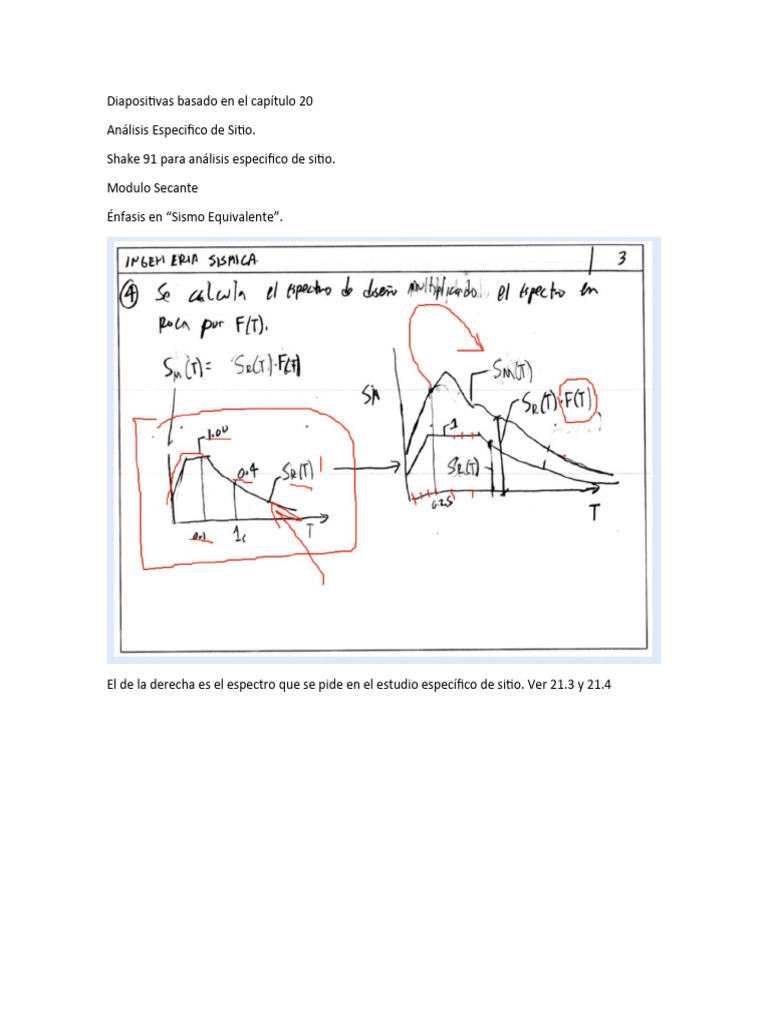 Diapositivas basado en el capítulo 20
Análisis Especifico de Sitio.
Shake 91 para análisis especifico de sitio.
Modulo Secante
Énfasis en “Sismo Equivalente”.
INGENIERIA SISMICA 3
④ Se calcula el espectro de diseño multiplicando el espectro en
Roca por F(T).
S_M(T) = S_R(T)·F(T)
SA
S_M(T)
S_R(T)·F(T)
1.00
1
0.4
S_R(T)
S_R(T)
0.25
0.1
1s
T
T
El de la derecha es el espectro que se pide en el estudio específico de sitio. Ver 21.3 y 21.4